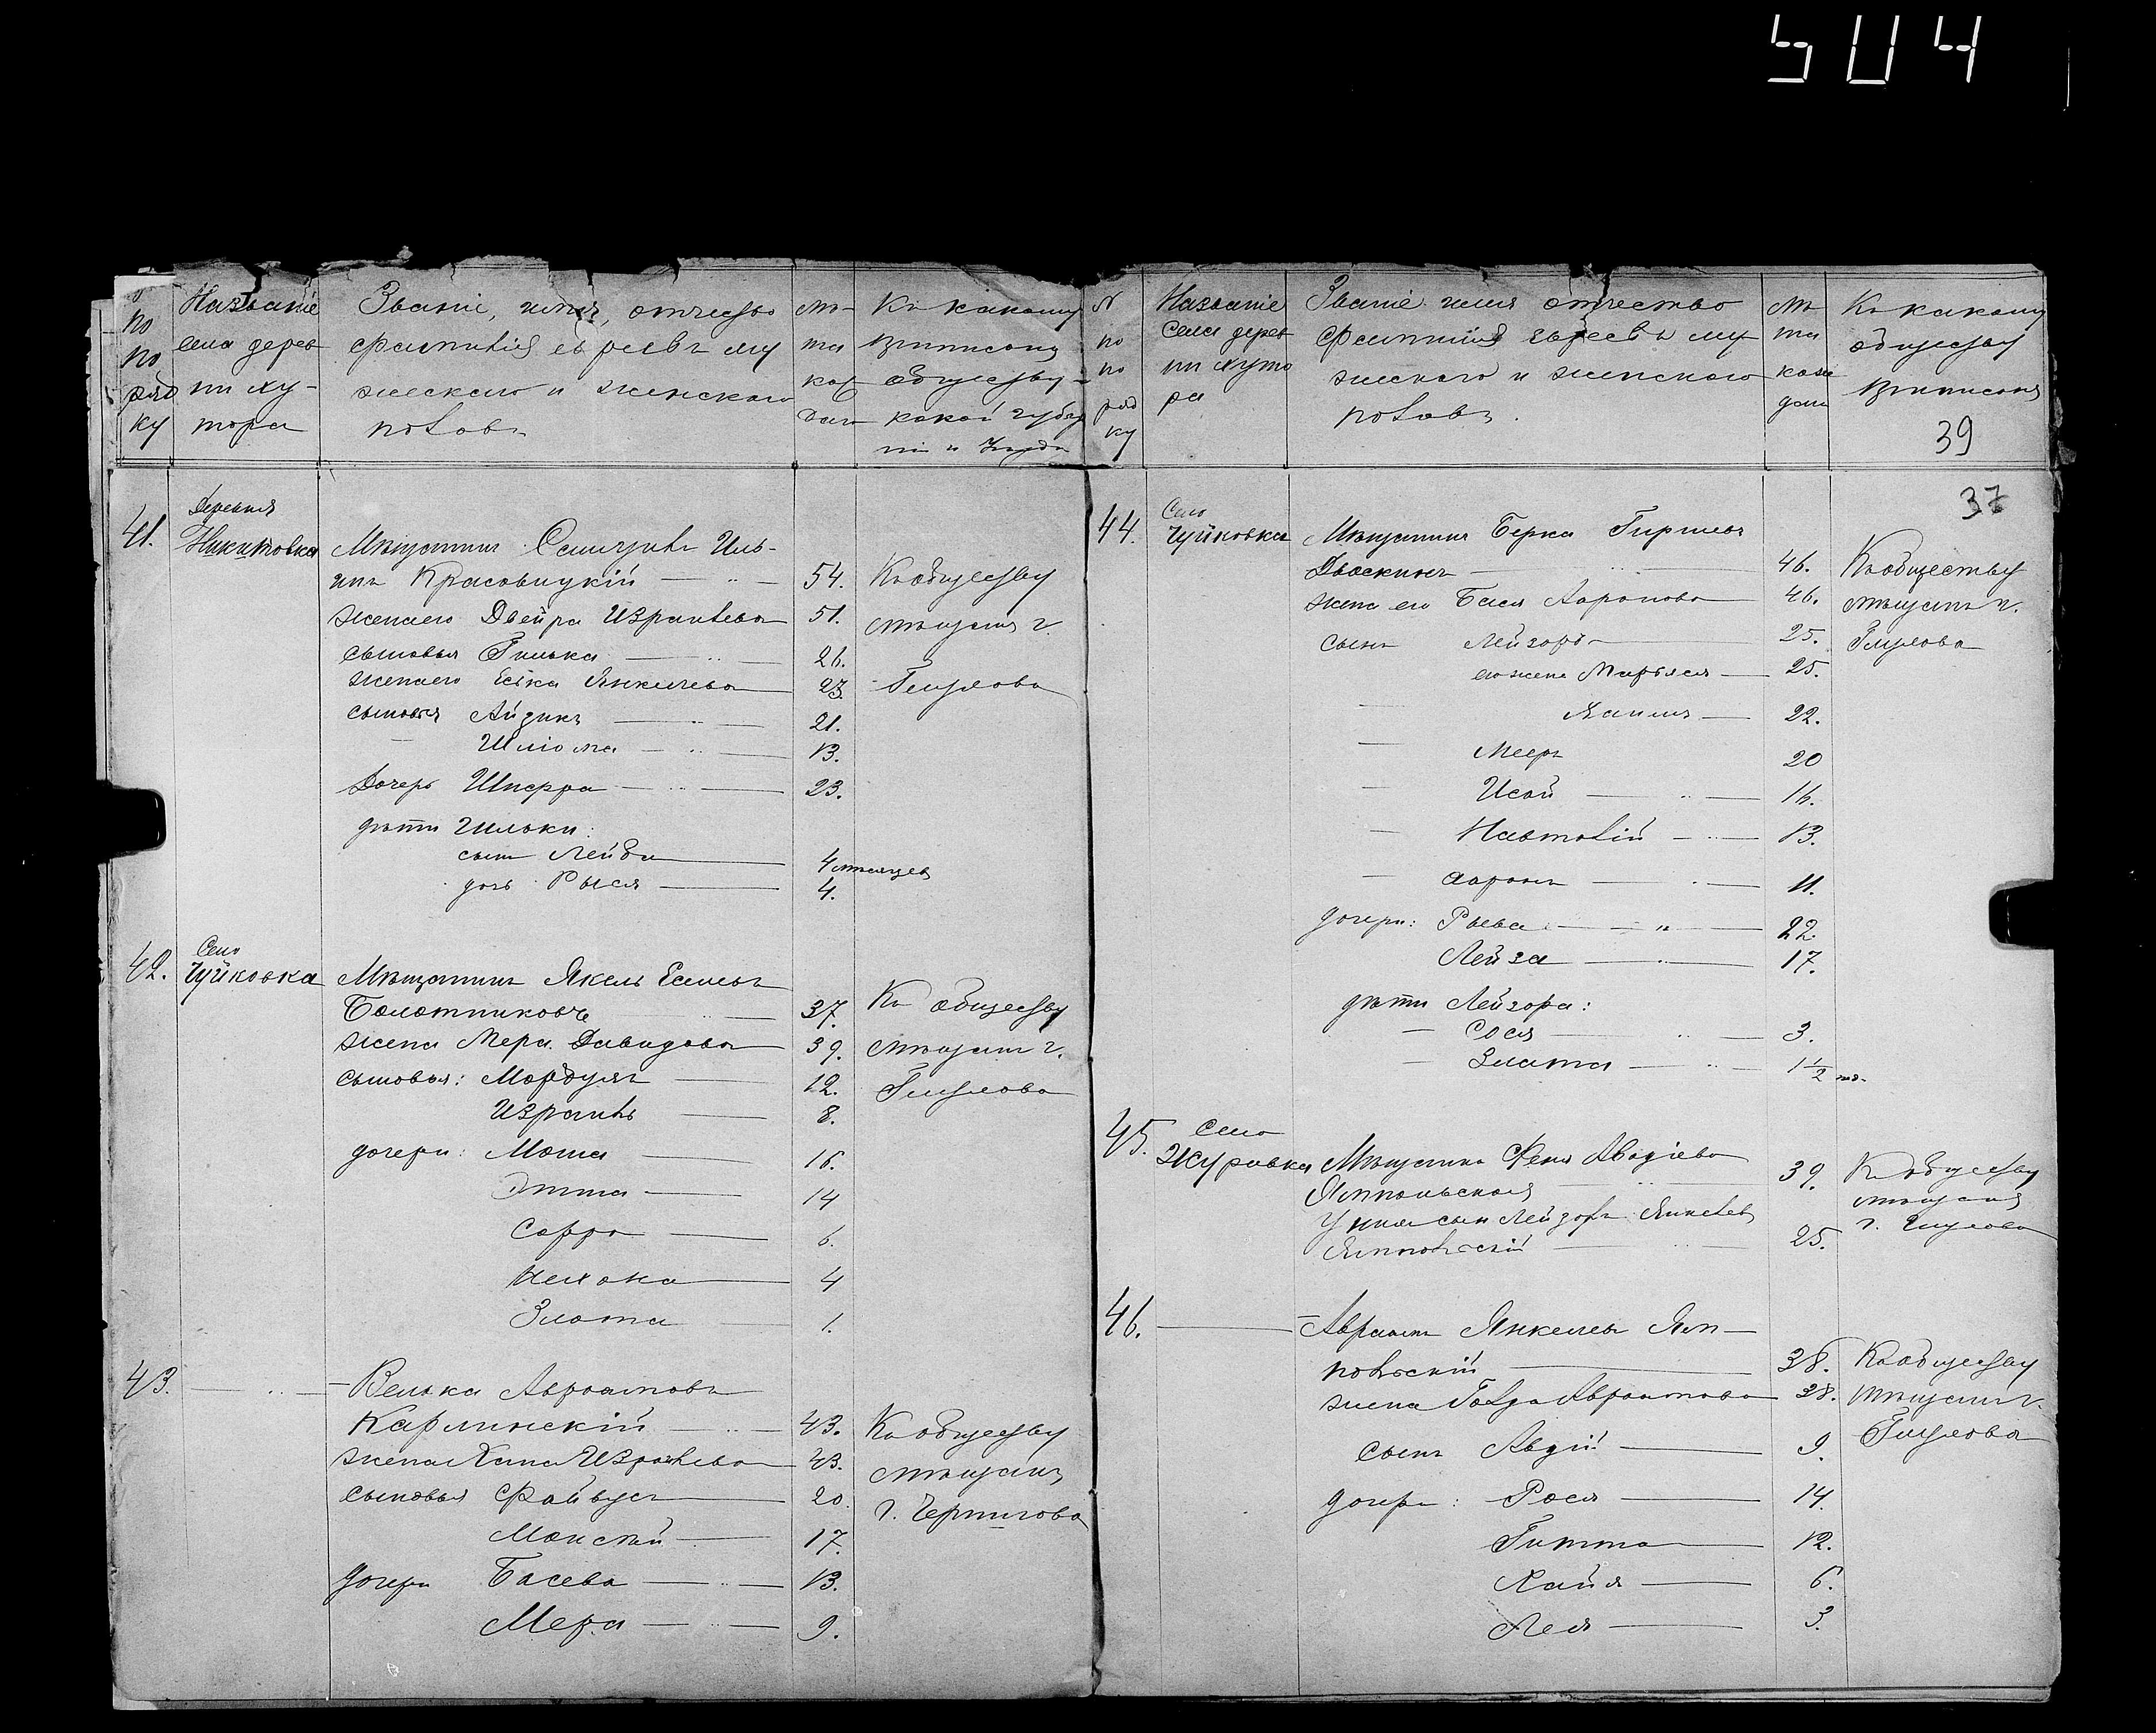 504
по
по
ряд
ку
Названіе
села дерев
ни ху-
тора
Званіе, имя, отчество
фамилія евреевъ му
жескаго и женскаго
половъ
лѣ-
та
каж
даго
Къ какому
приписаны
обществу
какой губер
ніи и Уѣзда
41.
Деревня
Никитовка
Мѣщанинъ Иль-
инъ Красовицкій 54.
жена его Двейра Израилева 51.
сыновья Гилька 26.
жена его Янкелева 23.
сыновья Айзикъ 21.
Шліома 13.
Дочерь Шифра 23.
дѣти Гильки:
сынъ Лейба 4 мѣсяцев
дочь Рыся 4.
Къ обществу
мѣщанъ г.
Глухова
42.
Село
Чуйковка
Мѣщанинъ
Болотниковъ 37.
жена Мера Давидова 39.
сыновья: Мордухъ 12.
Израиль 8.
дочери: Моша 16.
Этта 14
Сорра 6.
Нехама 4
Злота 1.
Къ обществу
мѣщанъ г.
Глухова
43.
Велька Авраамовъ
Карлинскій 43.
жена Хана Израилева 43.
сыновья Файвусъ 20.
17.
дочери Басева 13.
Мера 9.
Къ обществу
мѣщанъ
г. Чернигова
№
по
по
ряд
ку
Названіе
села дерев
ни хуто
ра
Званіе имя отчество
фамилія евреевъ му
жескаго и женскаго
половъ.
Лѣ
та
каж
даго
Къ какому
обществу
приписаны
39
37
44.
Село
Чуйковка
Мѣщанинъ Берка Гиршевъ
Дваскинъ 46.
жена его Бася Ааронова 46.
сынъ Лейзоръ 25.
его жена Марьяся 25.
22.
Мееръ 20
Исай 16.
Навтолій 13.
Ааронъ 11.
дочери: Рыва 22.
Лейза 17.
дѣти Лейзора:
Сося 3.
Злата 1 1/2
Къ обществу
мѣщанъ г.
Глухова
45.
Село
Журавка
Мѣщанка Феня Авадіева
Ямпольская 39.
У нея сынъ Лейзоръ Янкелевъ
Ямпольскій 25.
Къ обществу
мѣщанъ
г. Глухова
46.
Авраамъ Янкелевъ Ям-
польскій 38.
жена Голда Авраамова 38.
сынъ Авдій 9.
дочери: Рося 14.
Гитта 12.
Хайя 6.
Лея 3.
Къ обществу
мѣщанъ г.
Глухова